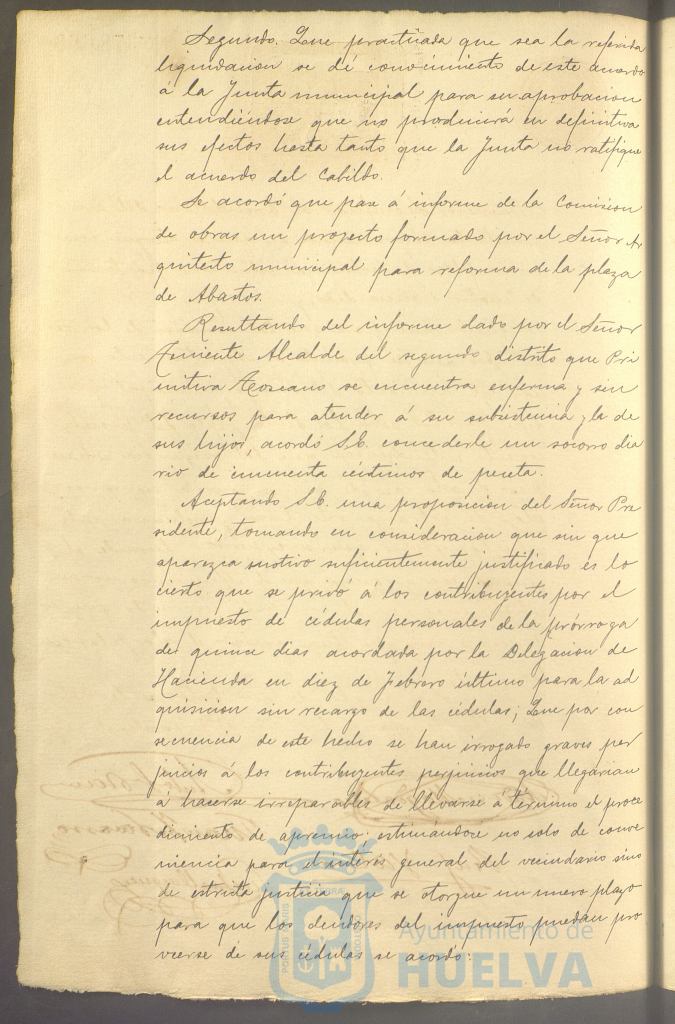 Segundo. Que practicada que sea la referida
liquidacion se dé conocimiento de este acuerdo
á la Junta municipal para su aprobacion
entendiéndose que no producirá en definitiva
sus efectos hasta tanto que la Junta no ratifique
el acuerdo del Cabildo.
Se acordó que pase á informe de la Comision
de obras un proyecto formado por el Señor Ar
quitecto municipal para reforma de la plaza
de Abastos.
Resultando del informe dado por el Señor
Teniente Alcalde del segundo distrito que Pri
mitiva Toscano se encuentra enferma y sin
recursos para atender á su subsistencia y la de
sus hijos, acordó S.E. concederle un socorro dia
rio de cincuenta céntimos de peseta.
Aceptando S.E. una proposicion del Señor Pre
sidente, tomando en consideracion que sin que
aparezca motivo suficientemente justificado es lo
cierto que se privó á los contribuyentes por el
impuesto de cédulas personales de la prórroga
de quince dias acordada por la Delegacion de
Hacienda en diez de Febrero último para la ad
quisicion sin recargo de las cédulas; Que por con
secuencia de este hecho se han irrogado graves per
juicios á los contribuyentes perjuicios que llegarian
á hacerse irreparables de llevarse á término el proce
dimiento de apremio: estimándose no solo de conve
niencia para el interés general del vecindario sino
de estricta justicia que se otorgue un nuevo plazo
para que los deudores del impuesto puedan pro
veerse de sus cédulas se acordó:
Ayuntamiento de
HUELVA